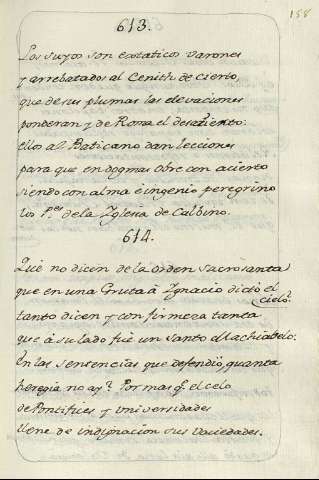 158
613.
Los suyos son extaticos varones
y arrebatados al Cenith de cierto,
que de sus plumas las elevaciones
ponderan y de Roma el desaziento:
ellos al Baticano dan lecciones
para que en dogmas obre con acierto
siendo con alma è ingenio peregrino
los P.es de la Yglesia de Calbino.
614.
Què no dicen de la òrden sacrosanta
que en una Gruta à Ygnacio dictò el
cielo?
tanto dicen y con firmeza tanta
que à su lado fue un santo Machiabelo.
En las sentencias que defendiò, quanta
heregia no ay? Por mas q. el celo
de Pontifices y Universidades
llene de indignacion sus vaciedades.